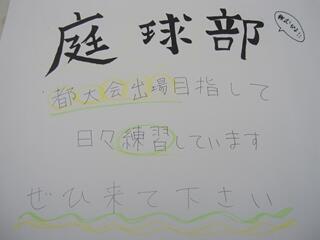 庭球部
都大会出場目指して
日々練習しています
ぜひ来て下さい